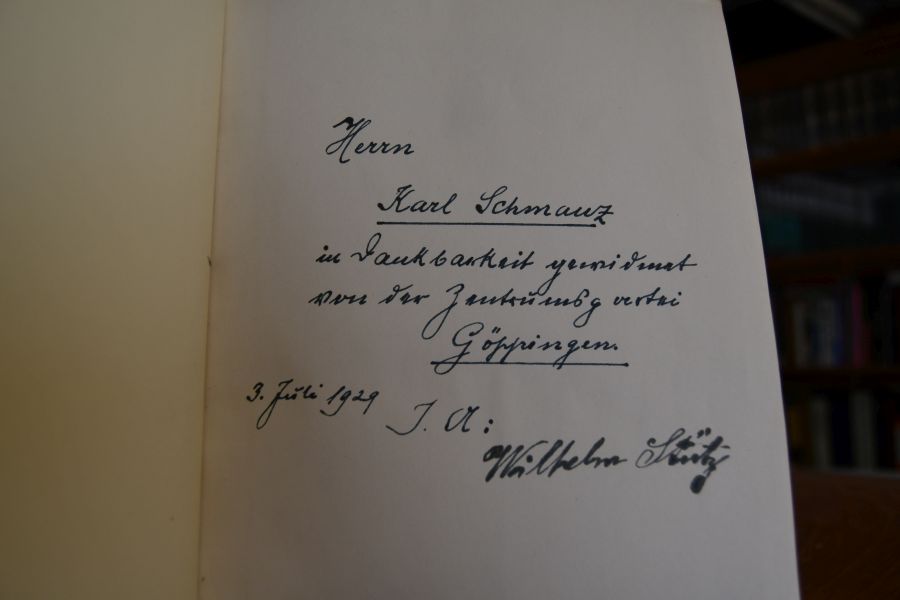 Herrn
Karl Schmauz
in Dankbarkeit gewidmet
von der Zentrumspartei
Göppingen.
3. Juli 1929
I. A:
Wilhelm Stütz